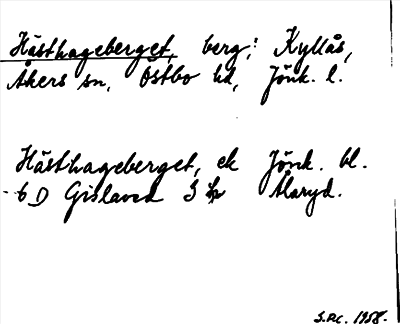 Hästhageberget, berg; Kyllås,
Åkers sn, Östbo hd, Jönk. l.
Hästhageberget, ek Jönk. bl.
6 D Gislaved S Åaryd.
1958.